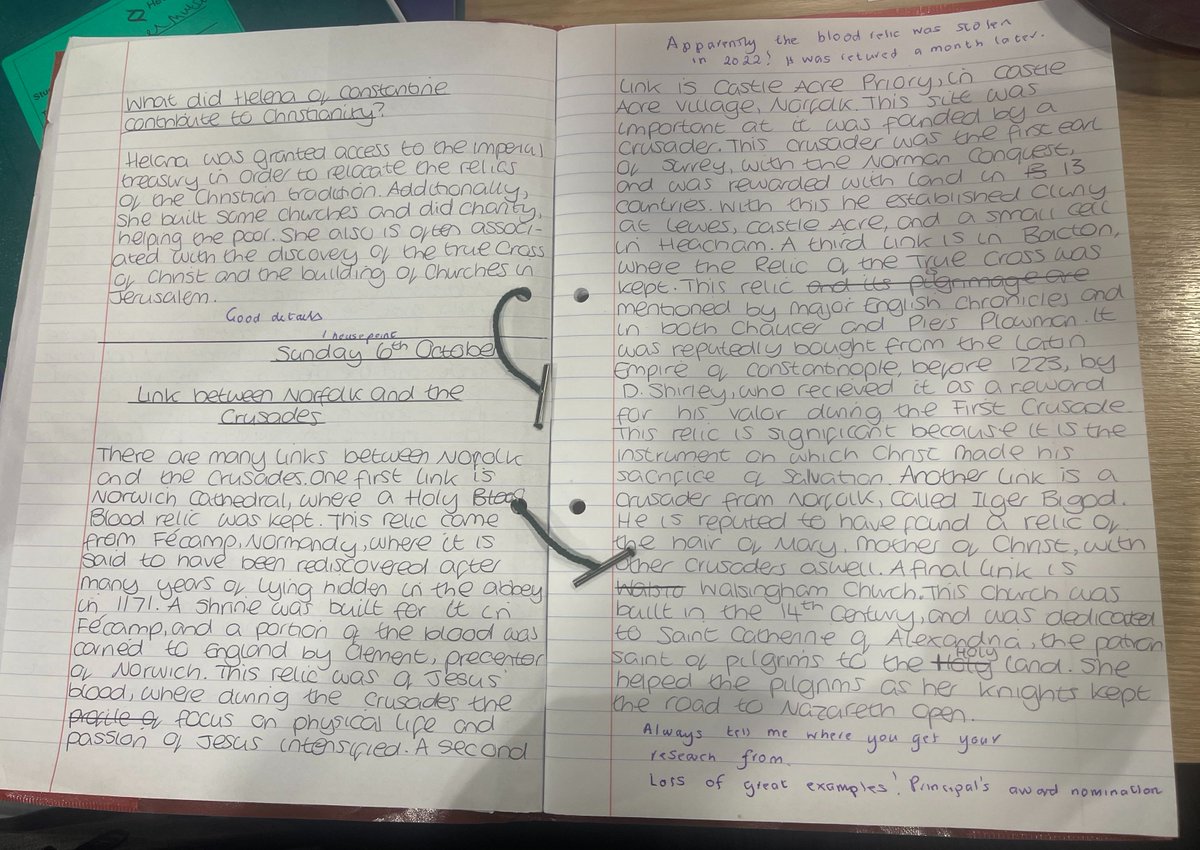 What did Helena of Constantine
contribute to Christianity?
Helena was granted access to the imperial
treasury in order to relocate the relics
of the Christian tradition. Additionally,
she built some churches and did charity,
helping the poor. She also is often associ-
ated with the discovery of the true Cross
of Christ and the building of Churches in
Jerusalem.
Good details
1 housepoint
Sunday 6th October
Link between Norfolk and the
Crusades
There are many links between Norfolk
and the Crusades. One first link is
Norwich Cathedral, where a Holy Blood
Blood relic was kept. This relic came
from Fécamp, Normandy, where it is
said to have been rediscovered after
many years of lying hidden in the abbey
in 1171. A shrine was built for it in
Fécamp, and a portion of the blood was
carried to England by Clement, precentor
of Norwich. This relic was of Jesus'
blood, where during the crusades the
profile of focus on physical life and
passion of Jesus intensified. A second
Apparently the blood relic was stolen
in 2022! It was retured a month later.
link is Castle Acre Priory, in Castle
Acre village, Norfolk. This site was
important at it was founded by a
crusader. This crusader was the first earl
of Surrey, with the Norman Conquest,
and was rewarded with land in 13
countries. With this he established Cluny
at Lewes, Castle Acre, and a small cell
in Heacham. A third link is in Bacton,
where the Relic of the True Cross was
kept. This relic is and its pilgrimage are
mentioned by major English chronicles and
in both Chaucer and Piers Plowman. It
was reputedly bought from the Latin
Empire of Constantinople, before 1223, by
D. Shirley, who recieved it as a reward
for his valor during the First Crusade.
This relic is significant because it is the
instrument on which Christ made his
sacrifice of Salvation. Another link is a
crusader from Norfolk, called Ilger Bigod.
He is reputed to have found a relic of
the hair of Mary, mother of Christ, with
other crusaders aswell. A final link is
Walsingham Church. This church was
built in the 14th century, and was dedicated
to Saint Catherine of Alexandria, the patron
saint of pilgrims to the Holy Holy land. She
helped the pilgrims as her knights kept
the road to Nazareth open.
Always tell me where you get your
research from.
Lots of great examples! Principal's award nomination